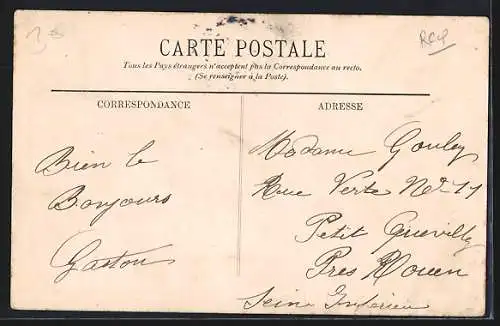 CARTE POSTALE
Tous les Pays étrangers n'acceptent pas la Correspondance au recto.
(Se renseigner à la Poste).
CORRESPONDANCE
Bien le
Bonjours
Gaston
ADRESSE
Madame Gouley
Rue Verte No 17
Petit Quevilly
Pres Rouen
Seine Inferieu